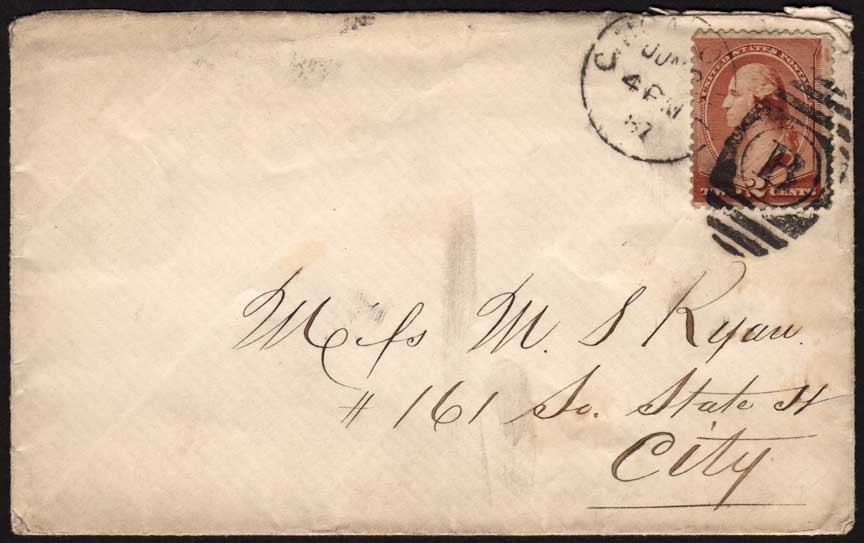 JUN
4 PM
87
UNITED STATES POSTAGE
B
TWO 2 CENTS
Miss M. S Ryan.
# 161 So. State St
City